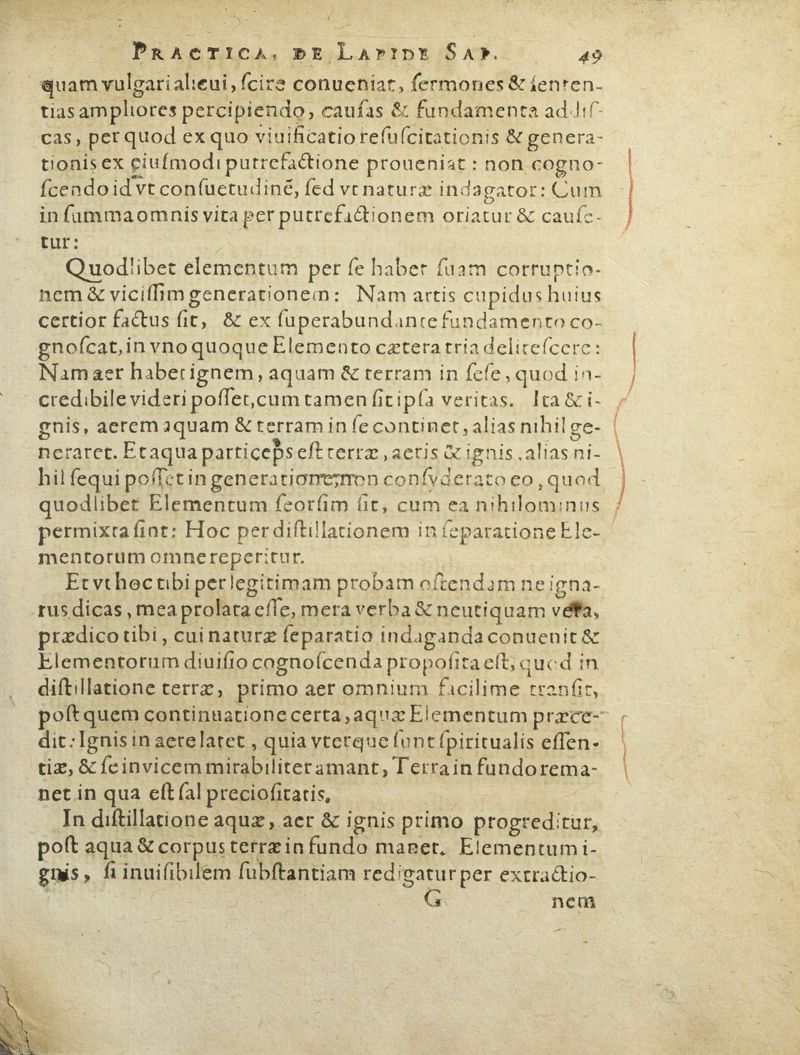 PRACTICA, DE LAPIDE SAP. 49
quam vulgari alicui, ſcire conueniat, ſermones & ſenten-
tias ampliores percipiendo, cauſas & fundamenta addiſ-
cas, per quod ex quo viuificatio reſuſcitationis & genera-
tionis ex eiuſmodi putrefactione proueniat: non cogno-
ſcendo id vt conſuetudinē, ſed vt naturæ indagator: Cum
in ſumma omnis vita per putrefactionem oriatur & cauſe-
tur:
Quodlibet elementum per ſe habet ſuam corruptio-
nem & viciſſim generationem: Nam artis cupidus huius
certior factus ſit, & ex ſuperabundante fundamento co-
gnoſcat, in vno quoque Elemento cætera tria deliteſcere:
Nam aer habet ignem, aquam & terram in ſeſe, quod in-
credibile videri poſſet, cum tamen ſit ipſa veritas. Ita & i-
gnis, aerem aquam & terram in ſe continet, alias nihil ge-
neraret. Et aqua particeps eſt terræ, aeris & ignis, alias ni-
hil ſequi poſſet in generatione, non conſyderato eo, quod
quodlibet Elementum ſeorſim ſit, cum ea nihilominus
permixta ſint: Hoc per diſtillationem in ſeparatione Ele-
mentorum omne reperitur.
Et vt hoc tibi per legitimam probam oſtendam ne igna-
rus dicas, mea prolata eſſe, mera verba & neutiquam vera,
prædico tibi, cui naturæ ſeparatio indaganda conuenit &
Elementorum diuiſio cognoſcenda propoſita eſt, quod in
diſtillatione terræ, primo aer omnium facilime tranſit,
poſt quem continuatione certa, aquæ Elementum præce-
dit: Ignis in aere latet, quia vterque ſunt ſpiritualis eſſen-
tiæ, & ſe invicem mirabiliter amant, Terra in fundo rema-
net in qua eſt ſal precioſitatis.
In diſtillatione aquæ, aer & ignis primo progreditur,
poſt aqua & corpus terræ in fundo manet. Elementum i-
gnis, ſi inuiſibilem ſubſtantiam redigatur per extractio-
G nem